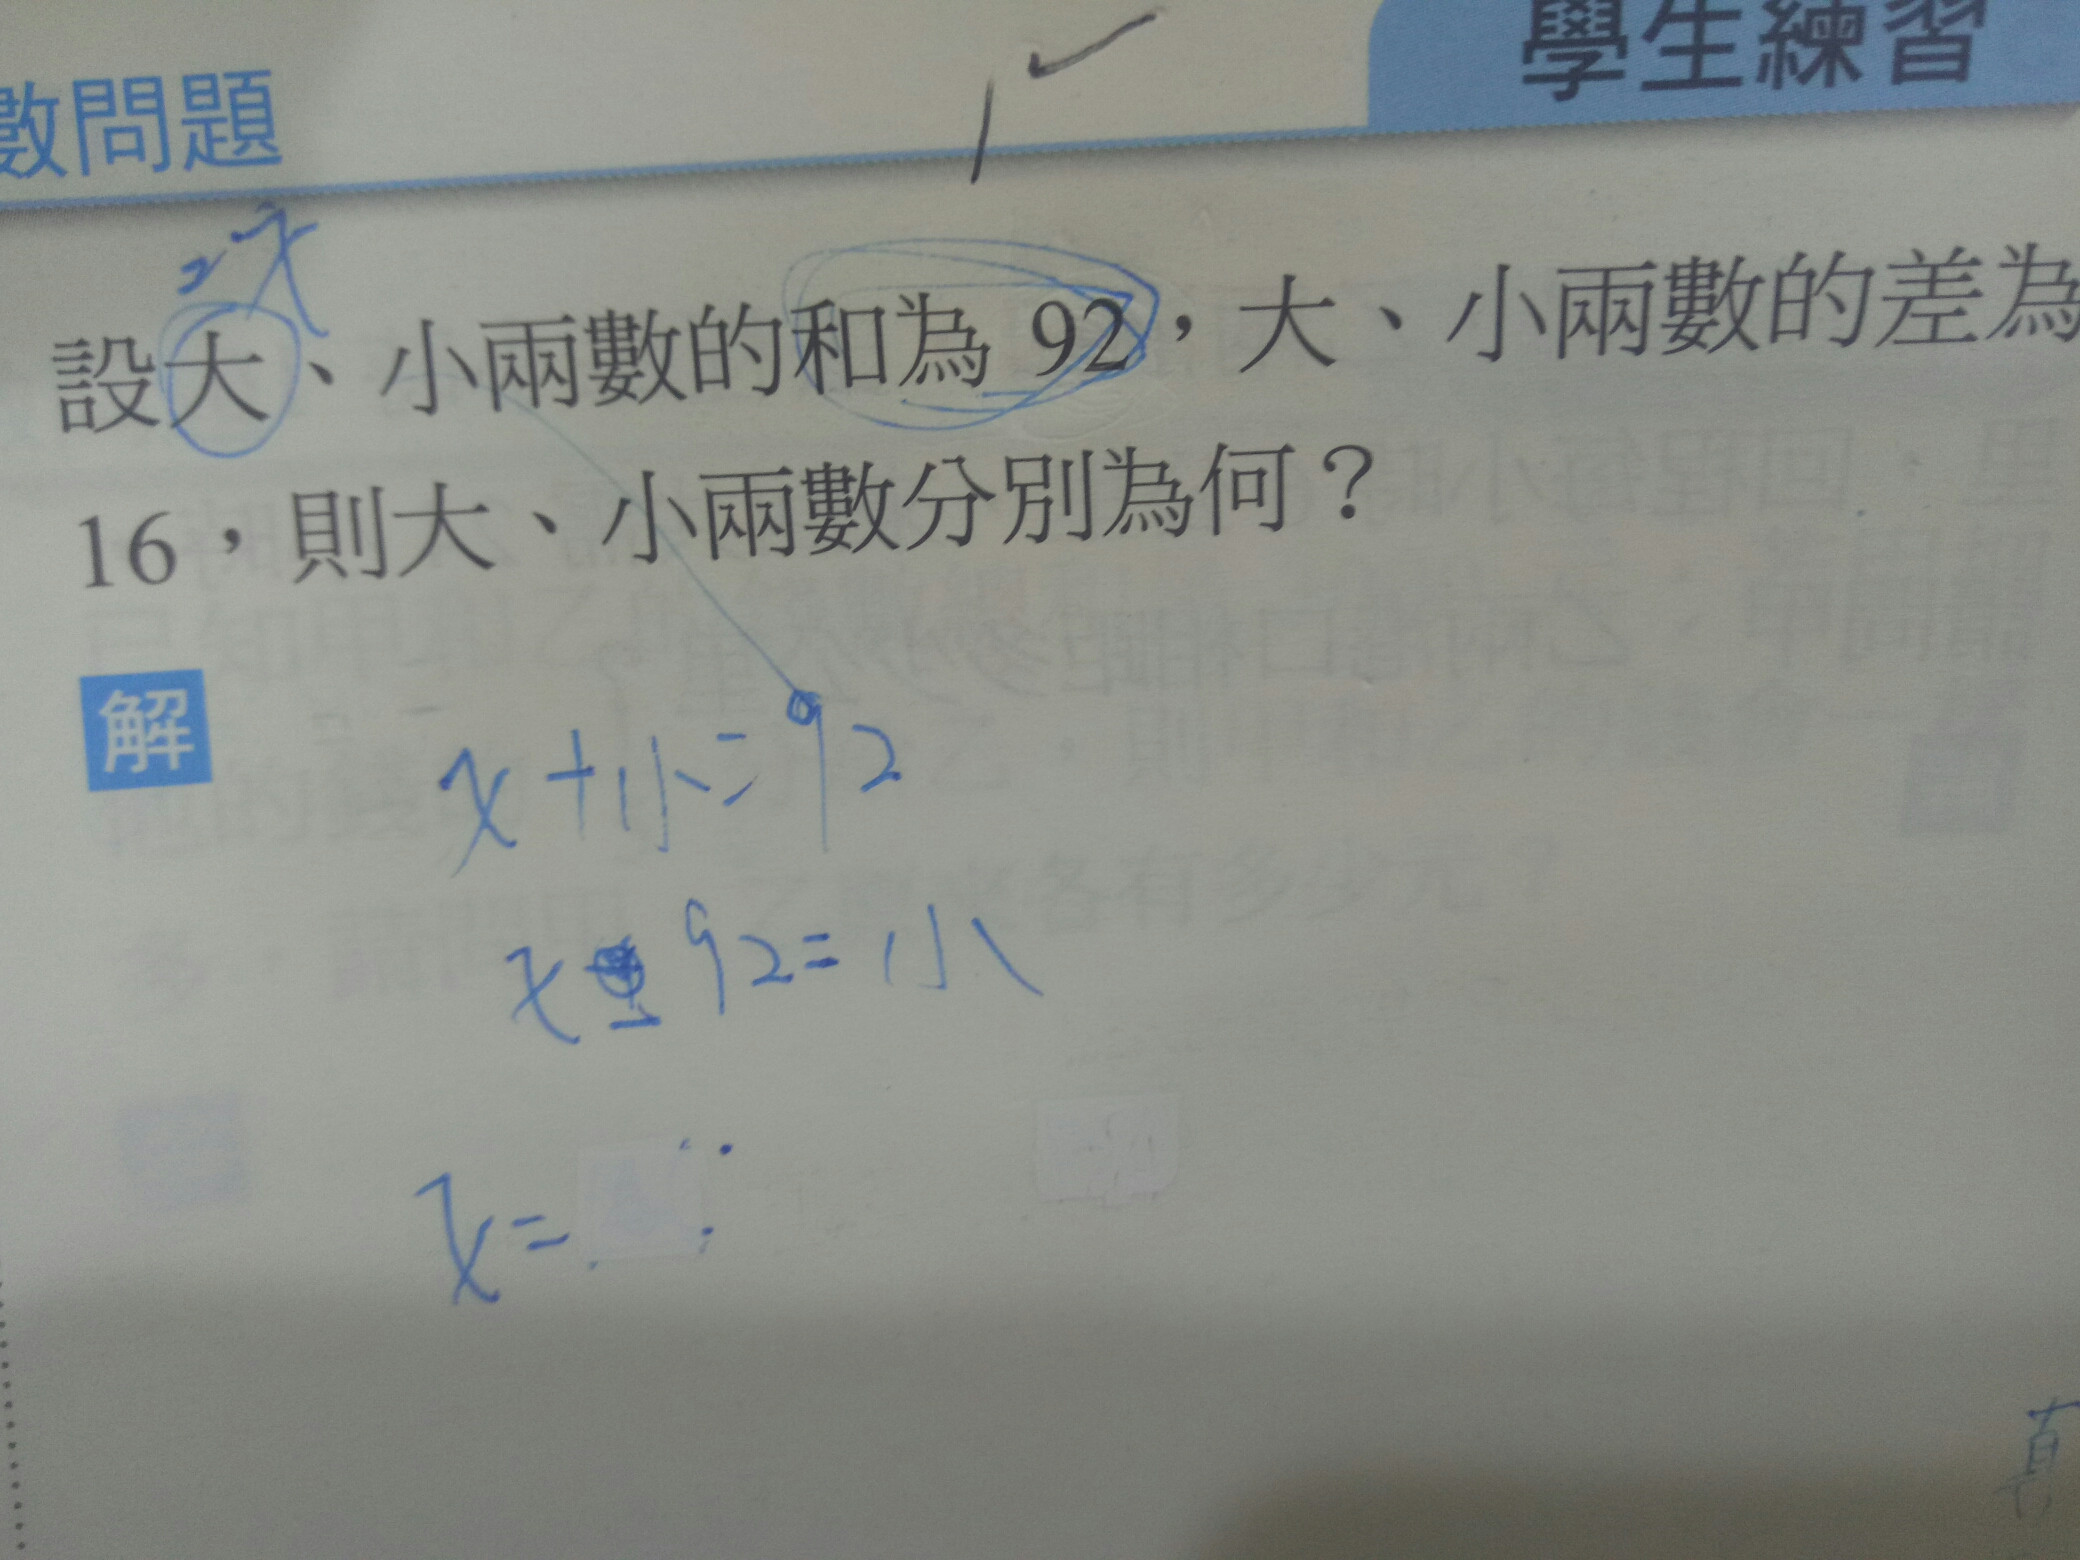 數問題
學生練習
x
設大、小兩數的和為 92，大、小兩數的差為
16，則大、小兩數分別為何？
解
x+小=92
x-92=小
x=